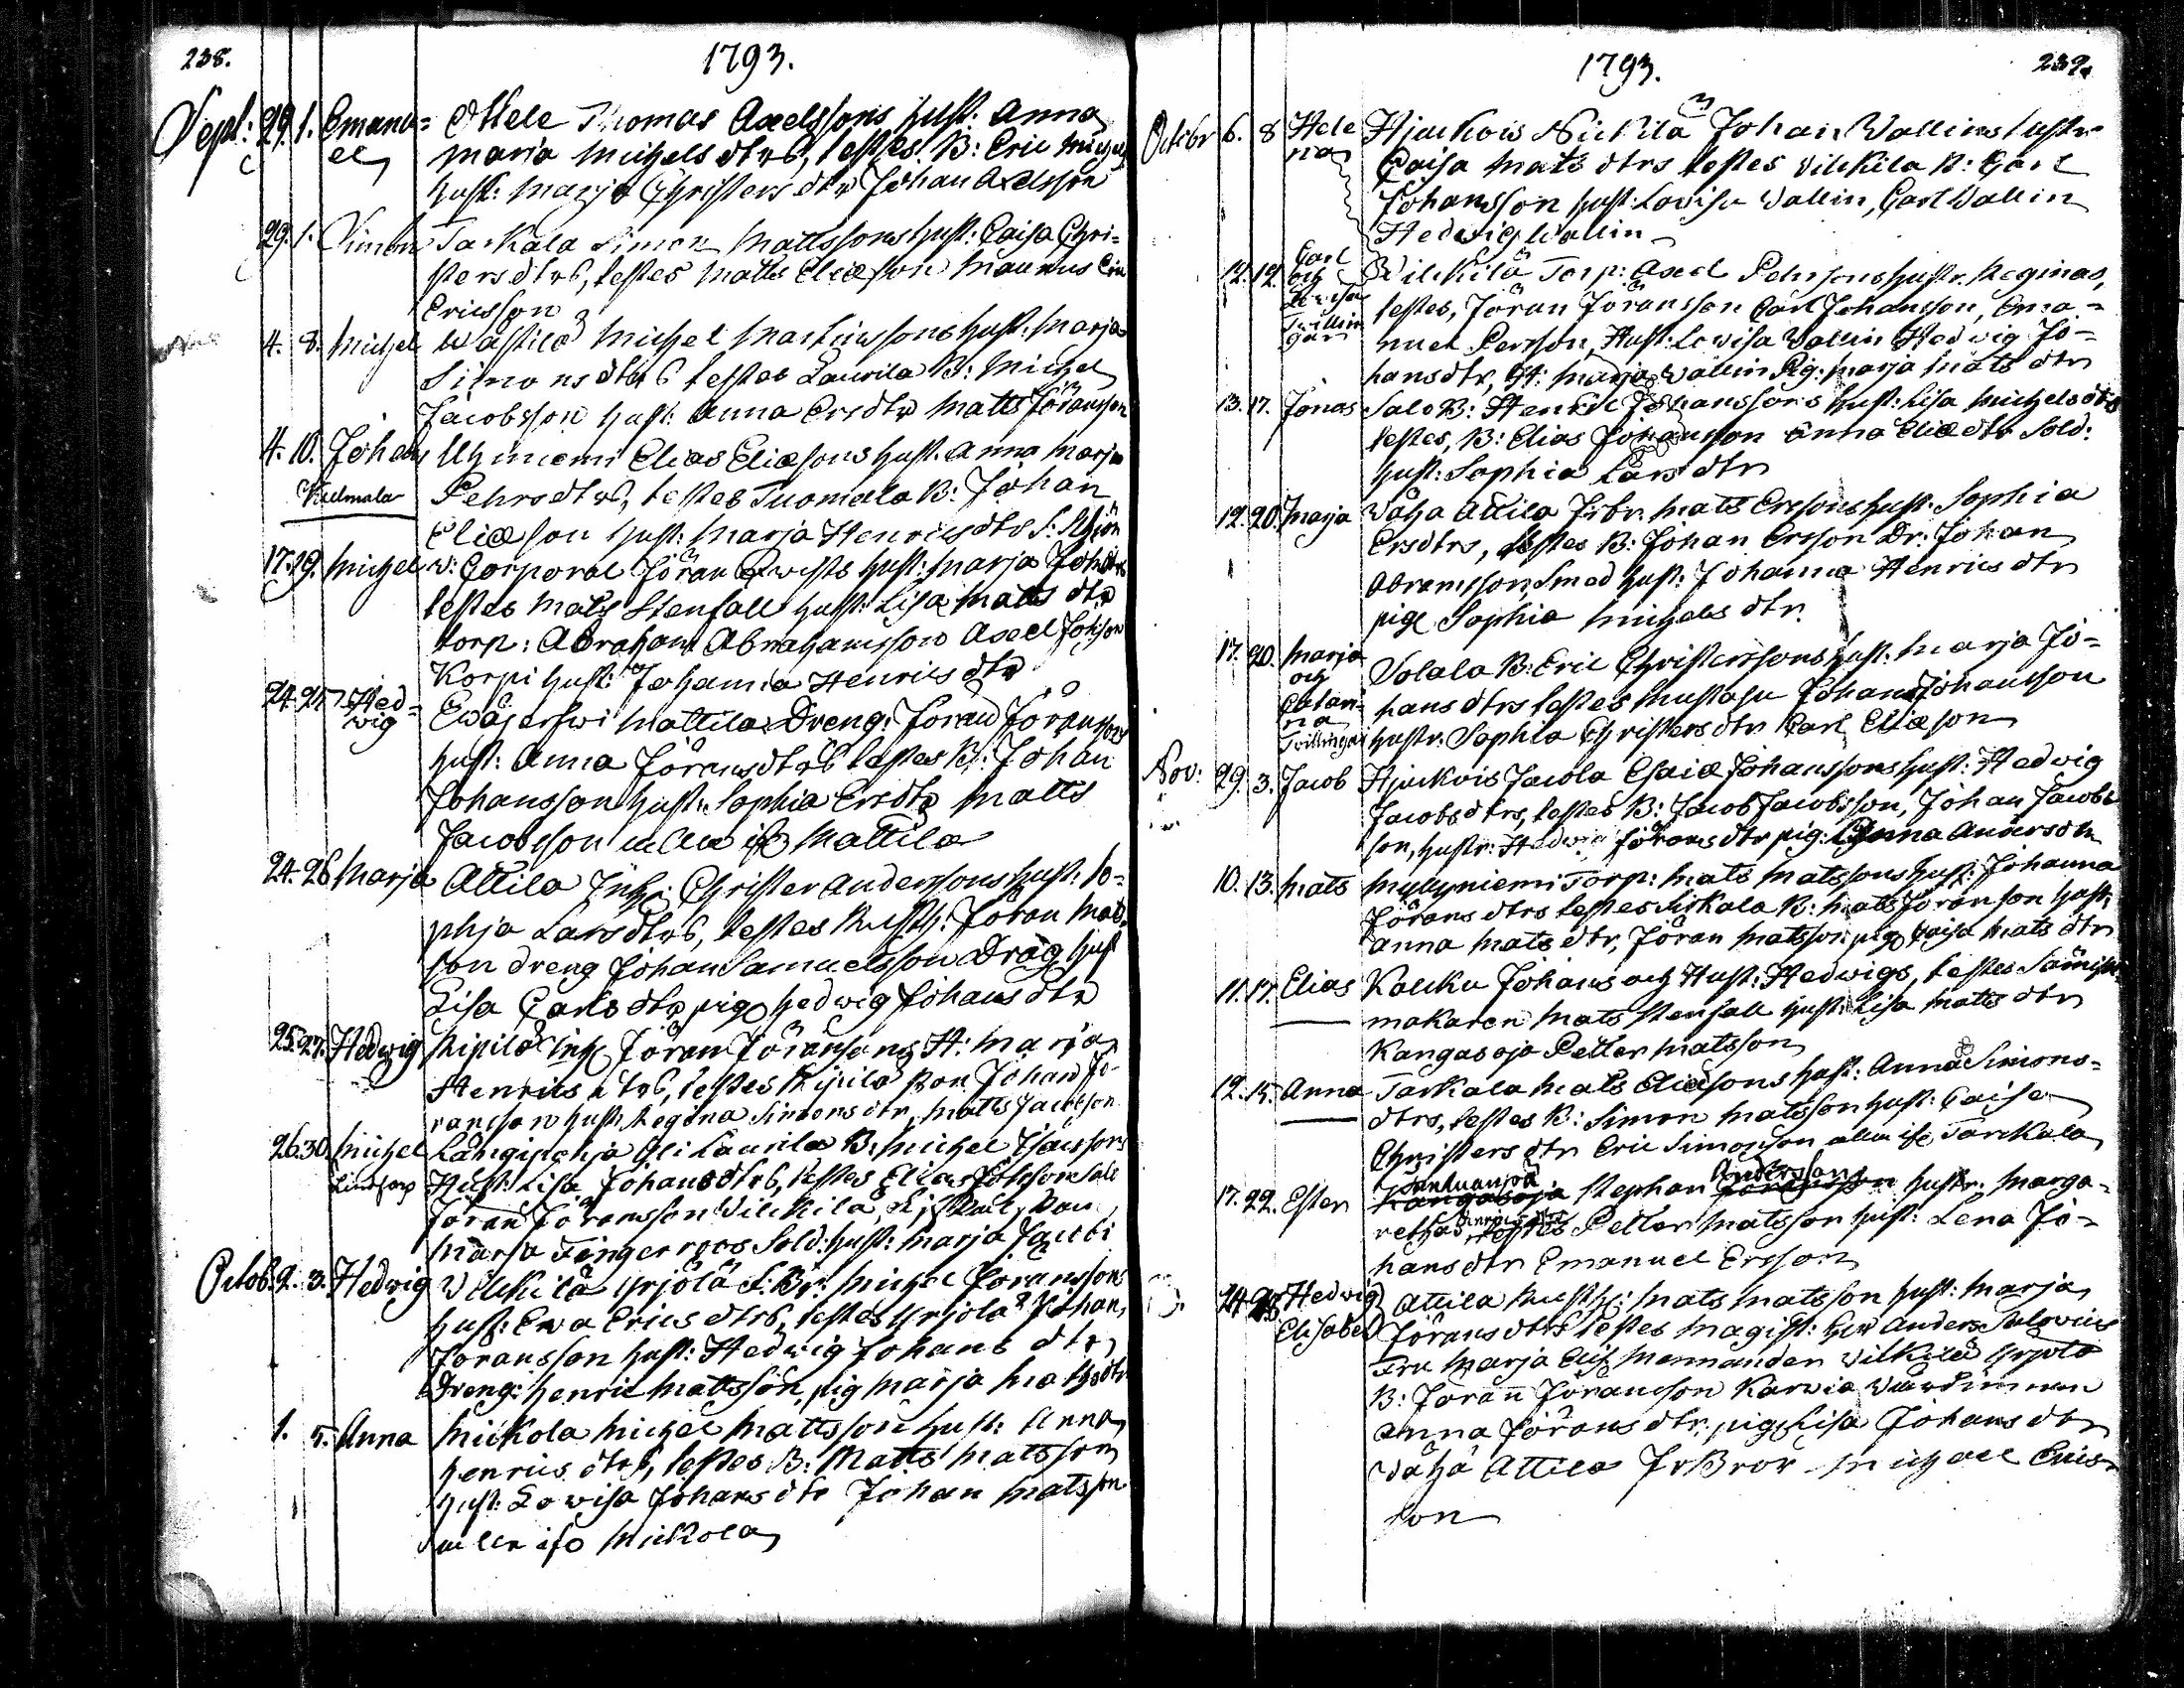 238.
1793.
Sept: 29. 1. Emanu= Thomas Axelssons hust: Anna
el Maria Michels dtrs, testes B: Eric Michels
hust: Marja Christers dtr Johan Axelsson
29. 1. Simon Tarkala Simon Mattssons hust: Caisa Chri=
sters dtrs, testes Matts Eliæson Maunus
Ericsson
4. 8. Michel Wästilä Michel Martinssons hust: Marja
Simons dtrs testes Laurila B: Michel
Jacobsson hust: Anna Ersdtr Matts Jöransson
4. 10. Johan Elias Eliæsons hust. Anna Marja
Kulmala Pehrs dtrs, testes Tuomala B: Johan
Eliæson hust: Marja Henrics dtr
17. 19. Michel v: Corporal Jöran Qwists hust: Marja Joh dtrs
testes Mats Stenfall hust: Lisa Matts dtr
torp: Abraham Abrahamsson Axel Johsson
Korpi hust: Johanna Henrics dtr
24. 25 Hed= Mattila Dreng: Jöran Jöranssons
wig
hust: Anna Jörans dtrs testes B: Johan
Johansson hust: Sophia Ersdtr Matts
Jacobsson Mattila
24. 26 Marja Attila Inh: Christer Anderssons hust: So=
phja Lars dtrs, testes Rusth: Jöran Mats
son dreng Johan Samuelsson Dräg hust
Lisa Carls dtr pig Hedwig Johans dtr
25. 27. Hedwig Ripilä Inh Jöran Jöransons H: Maria
Henrics dtrs, testes Ripilä Bon Johan Jö=
ransson hust Regina Simons dtr, Matts Jacobson
26. 30. Michel Längipohja Yli Laurila B: Michel Isacssons
Lindfors Hust: Lisa Johans dtrs, testes Elias Johsson Salo
Jöran Jöransson Vilckilä,
Marja Fingerroos Sold: hust: Marja Jacobi
Octob. 2. 3. Hedwig Vilckilä Yrjölä Michel Jöranssons
hust: Ewa Erics dtrs, testes Yrjölä Johan
Joransson hust: Hedwig Johans dtr
Dreng: Henric Mattsson, pig Marja Matts dtr
1. 5. Anna Mickola Michel Mattsson hust: Anna
Henrics dtrs, testes B: Matts Matsson
hust: Lowisa Johans dtr Johan Matsson
alla ifr Mickola
1793.
239.
Octobr 6. 8 Hele Hjuckois Nickilä Johan Wallins hustr
na Caisa Mats dtrs testes Vilckila B: Carl
Johansson hust: Lovisa Wallin, Carl Wallin
Hedwig Wallin
12. 12. Carl Vilckilä Torp: Axel Pehrsons hustr. Reginas,
och
Lovisa testes, Jöran Jöransson Carl Johansson, Ema=
Twillin nuel Persson, Hust: Lowisa Wallin Hedwig Jo=
gar
hans dtr, H: Marja Wallin Pig: Marja Mats dtr
13. 17. Jonas Salo B: Henric Johanssons hust: Lisa Michels dtrs
testes, B: Elias Johansson Anna Eliæ dtr Sold:
hust: Sophia Lars dtr
12. 20. Marja Wähä Attila Jrbr. Matts Erssons hust: Sophia
Ersdtrs, testes B: Johan Ersson Dr: Johan
Abramsson, Smed hust: Johanna Henrics dtr
pige Sophia Michels dtr.
17. 20. Marja Solala B: Eric Christerssons hust: Marja Jo=
och
Catari= hans dtrs testes Mustasu Johan Johansson
na
Twillingar hustr: Sophia Christers dtr Carl Eliæson
Nov: 29. 3. Jacob Hjuckois Jacola Esaiæ Johanssons hust: Hedwig
Jacobs dtrs, testes B: Jacob Jacobsson, Johan Jacobs
son, hustr: Hedwig Jörans dtr pig: Anna Anders dtr
10. 13. Mats Myllyniemi Torp: Mats Matssons hust: Johanna
Jörans dtrs testes Sirkala B: Mats Jöranson hust:
Anna Mats dtr, Jöran Matsson pig Caisa Mats dtr
11. 17. Elias Koucku Johans och Hust: Hedwigs, testes
makaren Mats Stenfall hust: Lisa Matts dtr
Kangasoja Petter Matsson
12. 15. Anna Tarkala Mats Eliæsons hust: Anna Simons=
dtrs, testes B: Simon Matsson hust: Caisa
Christers dtr Eric Simonson alla ifr Tarckala
Andersons
17. 22. Ester Kangasoja Stephan hustr. Marga=
retha testes Petter Matsson hust: Lena Jo=
hans dtr Emanuel Ersson
24. Hedwig Attila Rusth: Mats Matsson hust: Marja
Elisabet Jörans dtrs testes Magist: Herr Anders Salovius
Fru Marja Elis Mennander Vilkilä Yrjölä
B: Jöran Jöransson Karvia
Anna Jörans dtr. pig Lisa Johans dtr
Wähä Attila Michael Erics
son